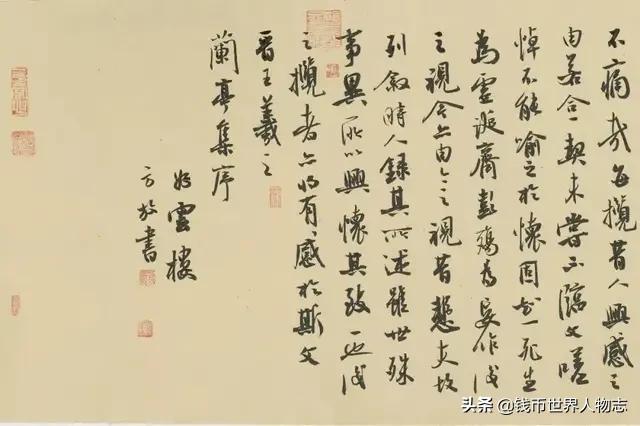 不痛哉每攬昔人興感之
由若合一契未嘗不臨文嗟
悼不能喻之於懷固知一死生
為虛誕齊彭殤為妄作後
之視今亦由今之視昔悲夫故
列敘時人錄其所述雖世殊
事異所以興懷其致一也後
之攬者亦將有感於斯文
晉王羲之
蘭亭集序
雲樓
方放書
头条 @钱币世界人物志